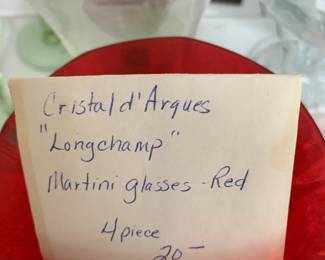 Cristal d'Arques
"Longchamp"
Martini glasses - Red
4 piece
20 —